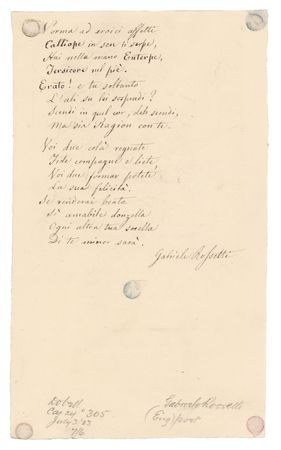 Norma ad eroici affetti
Calliope in sen ti serpe,
Hai nella mano Euterpe,
Tersicore nel piè.
Erato! e tu soltanto
L'ali su lui sospendi?
Scendi in quel cor, deh scendi,
Ma sia Ragion con te.
Voi due colà regnate
Fide compagne e liete,
Voi due formar potete
La sua felicità.
Se renderai beata
Sì amabile donzella
Ogni altra tua sorella
Di te minor sarà.
Gabriele Rossetti
Dobell
Cat 24 # 305
July 3/23
7/6
Gabriele Rossetti
(Eng) poet